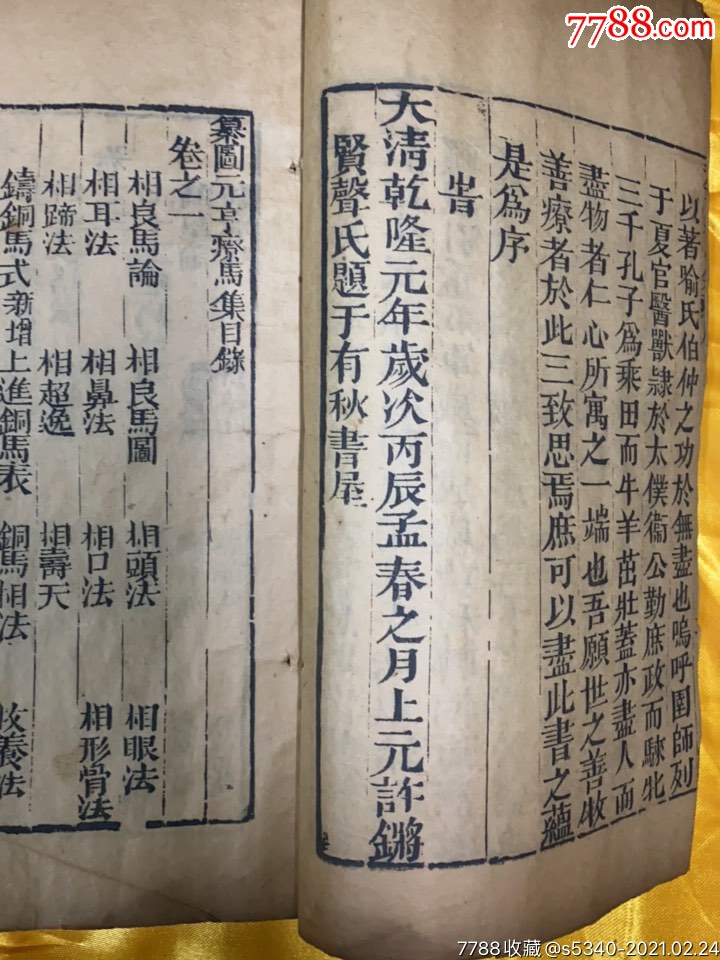 7788.com
以著喻氏伯仲之功於無盡也嗚呼圉師列
于夏官醫獸隷於太僕衞公勤庶政而騋牝
三千孔子為乗田而牛羊茁壯蓋亦盡人而
盡物者仁心所寓之一端也吾願世之善牧
善療者於此三致思焉庶可以盡此書之蘊
是為序
旹
大清乾隆元年歲次丙辰孟春之月上元許鏘
賢聲氏題于有秋書屋
纂圖元亨療馬集目錄
卷之一
相良馬論 相良馬圖 相頭法 相眼法
相耳法 相鼻法 相口法 相形骨法
相蹄法 相超逸 相壽夭
鑄銅馬式新增上進銅馬表 銅馬相法 牧養法
7788收藏@s5340-2021.02.24